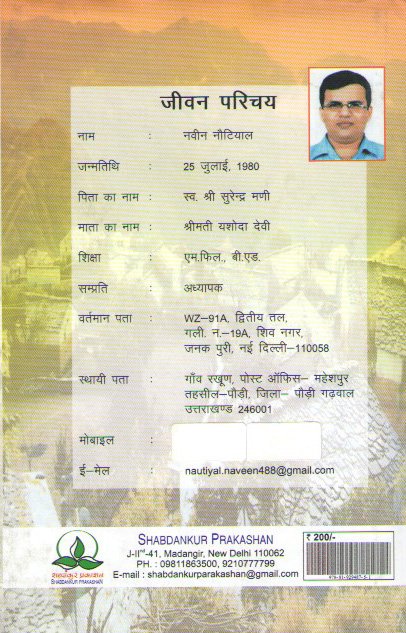 जीवन परिचय
नाम : नवीन नौटियाल
जन्मतिथि : 25 जुलाई, 1980
पिता का नाम : स्व. श्री सुरेन्द्र मणी
माता का नाम : श्रीमती यशोदा देवी
शिक्षा : एम.फिल., बी.एड.
सम्प्रति : अध्यापक
वर्तमान पता : WZ-91A, द्वितीय तल,
गली. न.-19A, शिव नगर,
जनक पुरी, नई दिल्ली-110058
स्थायी पता : गाँव रखूण, पोस्ट ऑफिस- महेशपुर
तहसील-पौड़ी, जिला- पौड़ी गढ़वाल
उत्तराखण्ड 246001
मोबाइल :
ई-मेल : nautiyal.naveen488@gmail.com
शब्दांकुर प्रकाशन
SHABDANKUR PRAKASHAN
SHABDANKUR PRAKASHAN
J-IInd-41, Madangir, New Delhi 110062
PH. : 09811863500, 9210777799
E-mail : shabdankurparakashan@gmail.com
₹ 200/-